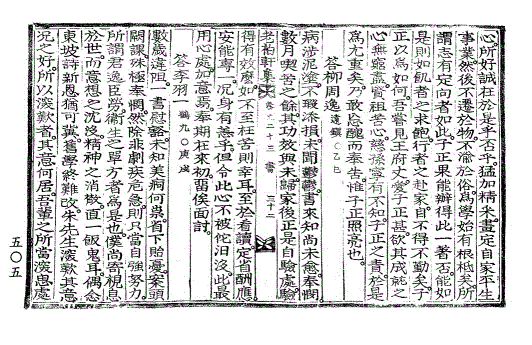 心。所好誠在於是乎否乎。猛加精采。畫定自家平生
事業然後不遷於物。不淪於俗。爲學始有根柢矣。所
謂志有定向者如此。子正果能辦得此一著否。能如
是則如飢者之求飽。行者之赴家。自不得不勤矣。子
正以爲如何。吾嘗見王府丈愛子正甚。欲其成就之
心。無竆盡。賢祖苦心。慈孫寧有不知。子正之責於是
爲尤重矣。乃敢忘醜而奉告。惟子正照亮也。
答柳周逸 遠鎭○乙巳
病滯泥塗。不暇添損。未聞鬱鬱。書來知尚未愈。奉憫
數月喫苦之餘。其功效與未歸家後正是自驗處。驗
老柏軒集 卷之二十三 書 三十二
得有效靡如。不至枉苦辛耳。至於看讀定省酬應。
安能專一。况身有恙乎。但令此心不被佗汩沒。此最
用心處。加意焉。奉期在來初。留俟面討。
答李羽一 鶴九○庚戌
數歲違咀。一書慰豁。未知美痾何祟。首下貽憂。案頭
闕課。殊極奉惻。然除非劇疾危急。則只當自强努力。
所謂君逸臣勞。衛生之單方者。爲是也。僕尚寄視息
於世。而意想之沈沒。精神之消散。直一飯鬼耳。偶念
東坡詩新恩猶可冀。舊學終難改。朱先生深歎其意
况之好。所以深歎者。其意何居。吾輩之所當深思處
五〇五